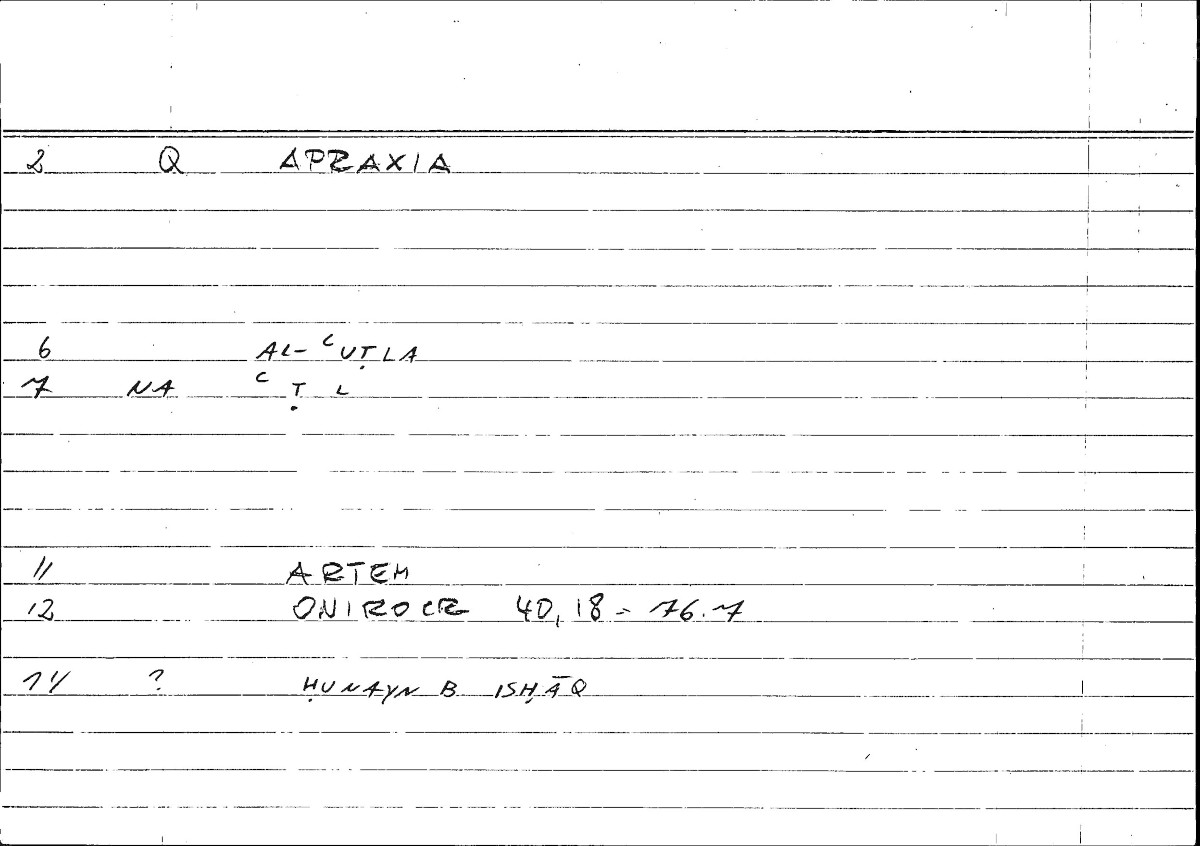 2 Q APRAXIA
6 AL-ʿUṬLA
7 NA ʿ Ṭ L
11 ARTEM
12 ONIROCR 40,18 - 76.7
14 ? ḤUNAYN B ISḤĀQ